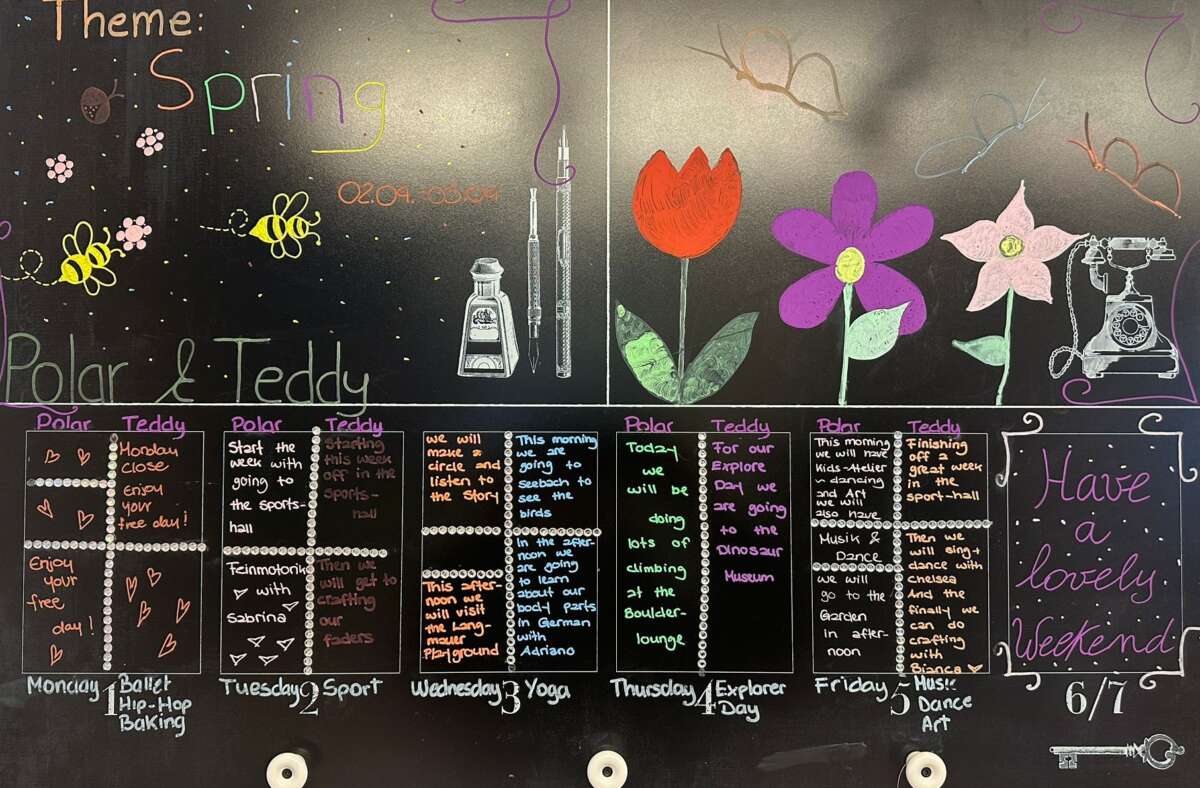 Theme:
Spring
02.04.-05.04
Polar & Teddy
Polar
Teddy
Monday
close
Enjoy
your
free day!
Enjoy
your
free
day!
Monday 1
Ballet
Hip-Hop
Baking
Polar
Start the
week with
going to
the sports-
hall
Feinmotorik
with
Sabrina
Teddy
Starting
this week
off in the
sports-
hall
Then we
will get to
crafting
our
faders
Tuesday 2 Sport
we will
make a
circle and
listen to
the Story
This after-
noon we
will visit
the Lang-
mauer
Playground
This morning
we are
going to
seebach to
see the
birds
In the after-
noon we
are going
to learn
about our
body parts
in German
with
Adriano
Wednesday 3 Yoga
Polar
Today
we
will be
doing
lots of
climbing
at the
Boulder-
lounge
Teddy
For our
Explore
Day we
are going
to the
Dinosaur
Museum
Thursday 4
Explorer
Day
Polar
This morning
we will have
Kids-Atelier
~ dancing
and Art
we will
also have
Musik &
Dance
we will
go to the
Garden
in after-
noon
Teddy
Finishing
off a
great week
in the
sport-hall
Then we
will sing+
dance with
chelsea
And the
finally we
can do
crafting
with
Bianca
Friday 5
Music
Dance
Art
Have
a
lovely
Weekend
6/7